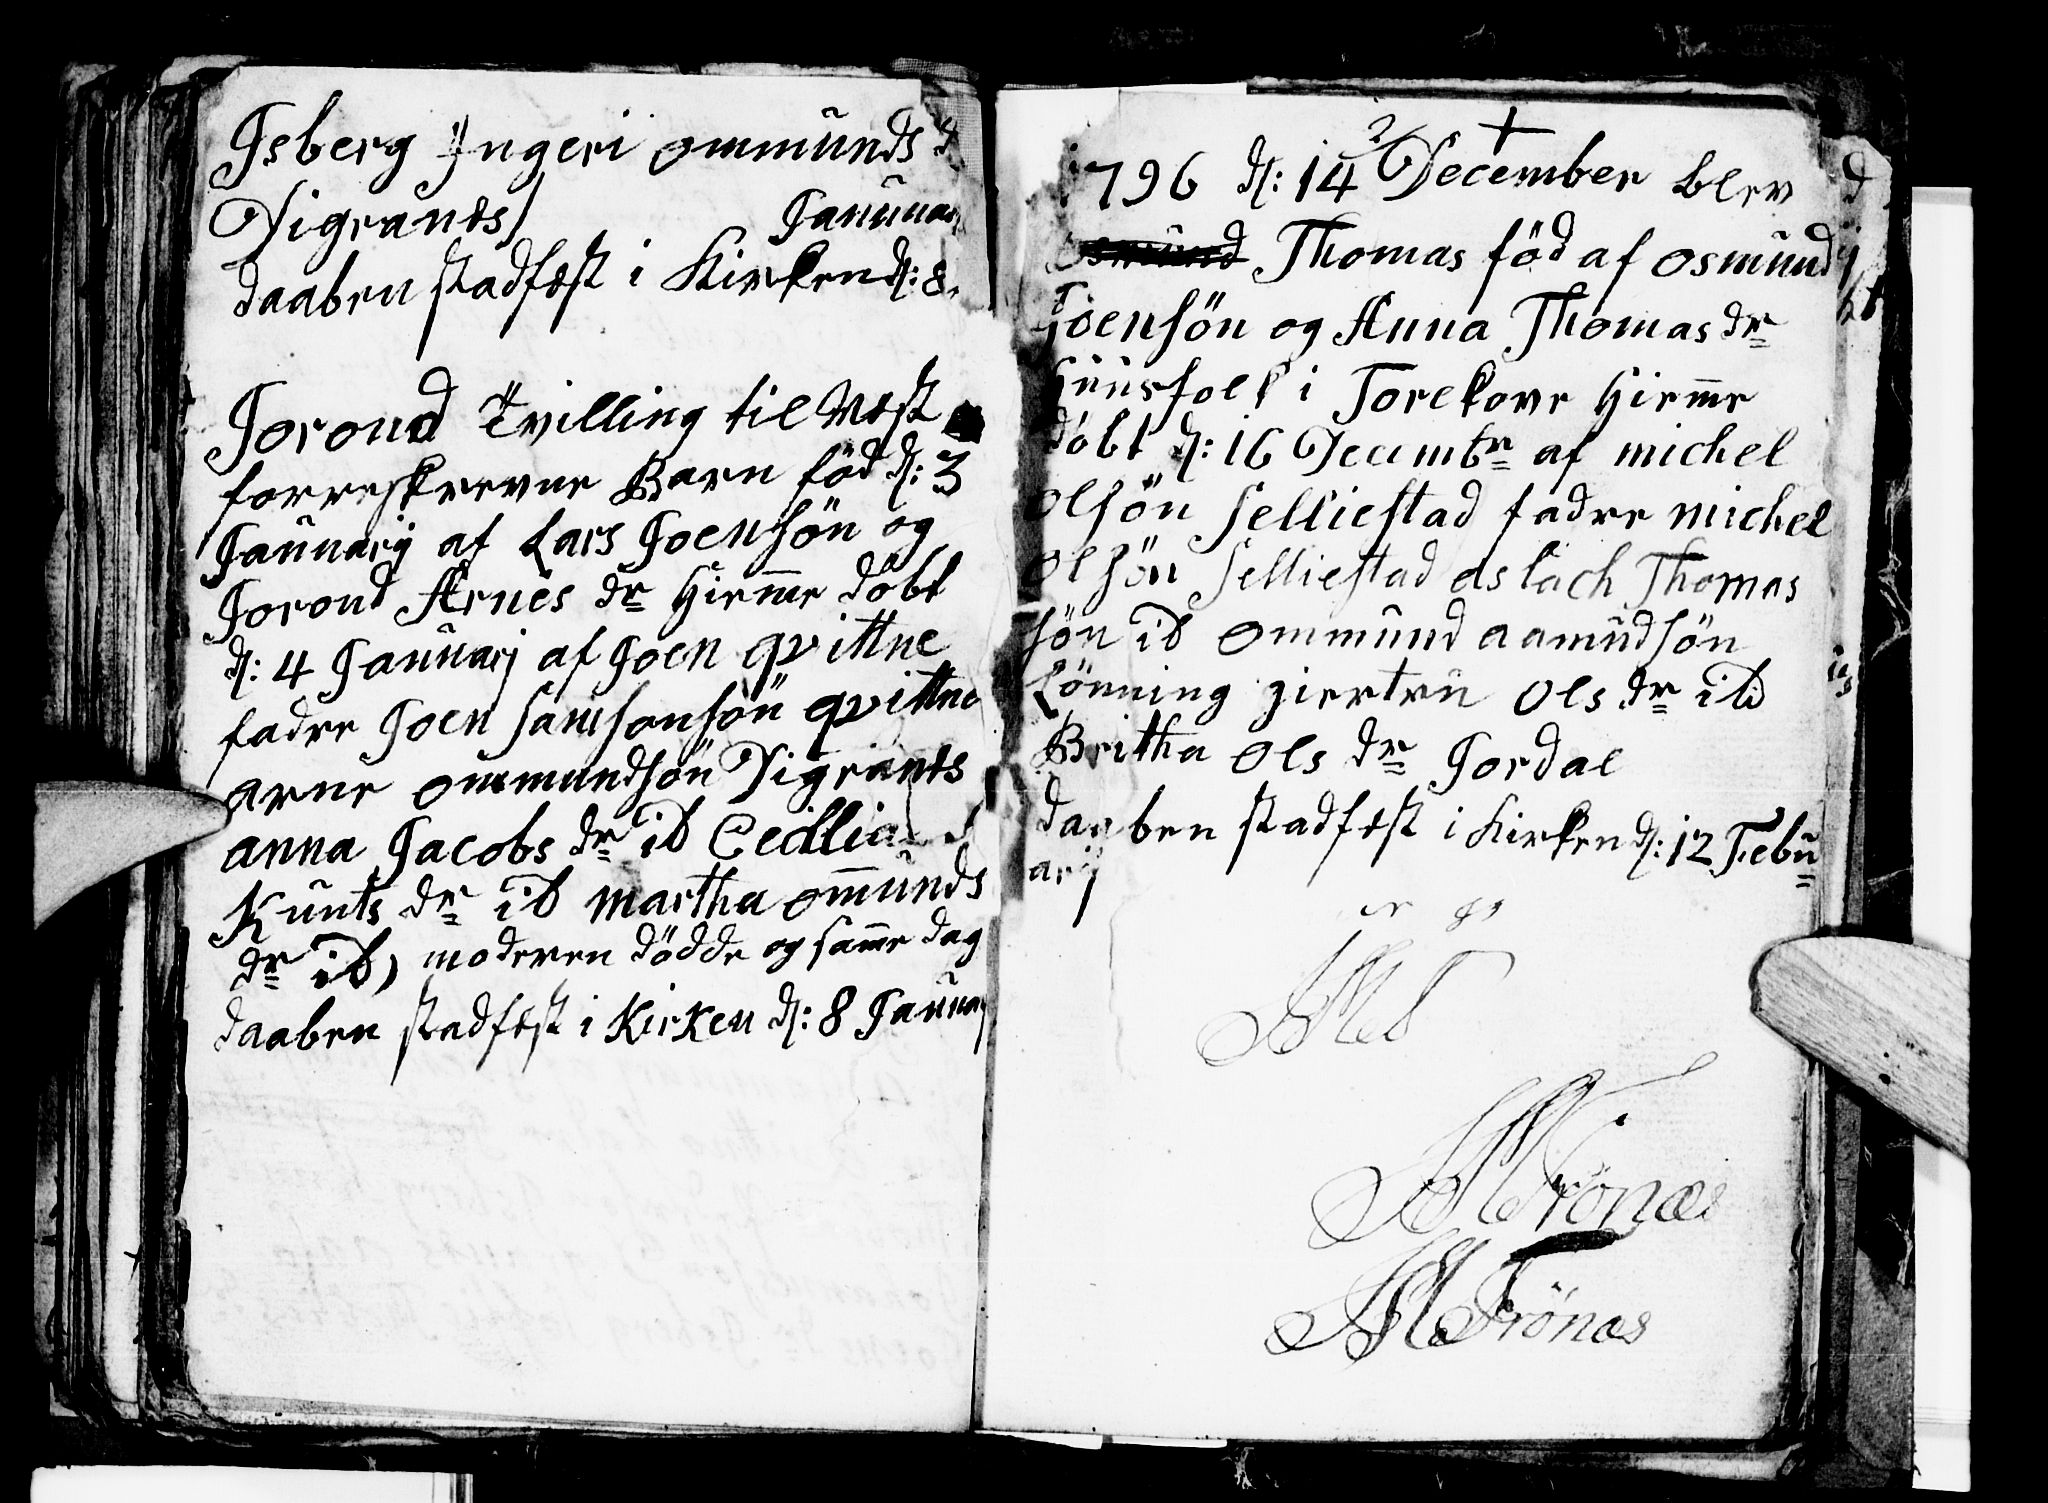 Isberg Ingeri ommunds d
Vigrants)
Januuar
daaben stadfæst i Kirken d: 8.
Jorond tvilling til Næst
forreskrevne Barn föd d: 3
Januarij af Lars Joensön og
Jorond Arnes dr hiemme döbt
d: 4 Januarj af Joen qvittne
fadre Joen Samsonsön qvittne
arne ommundsön Vigrants
anna Jacobs dr ib Cecillia
Kunts dr ib martha omunds
dr ib) moderen dödde og samme dag
daaben stadfæst i Kirken d: 8 Januarj
2/ +
1796 d: 14 December blev
Osmund Thomas föd af osmund
Joensön og Anna Thomas dr
huusfolk i Torekove hiemme
döbt d: 16 Decembr af michel
olsön Selliestad fadre michel
olsön Selliestad aslach Thomas
sön ib ommund aamudsön
Lönning giertru Ols dr ib
Britha Ols dr Jordal
daaben stadfæst i Kirken d: 12 Febu
arij
Trönæs
Trönæs